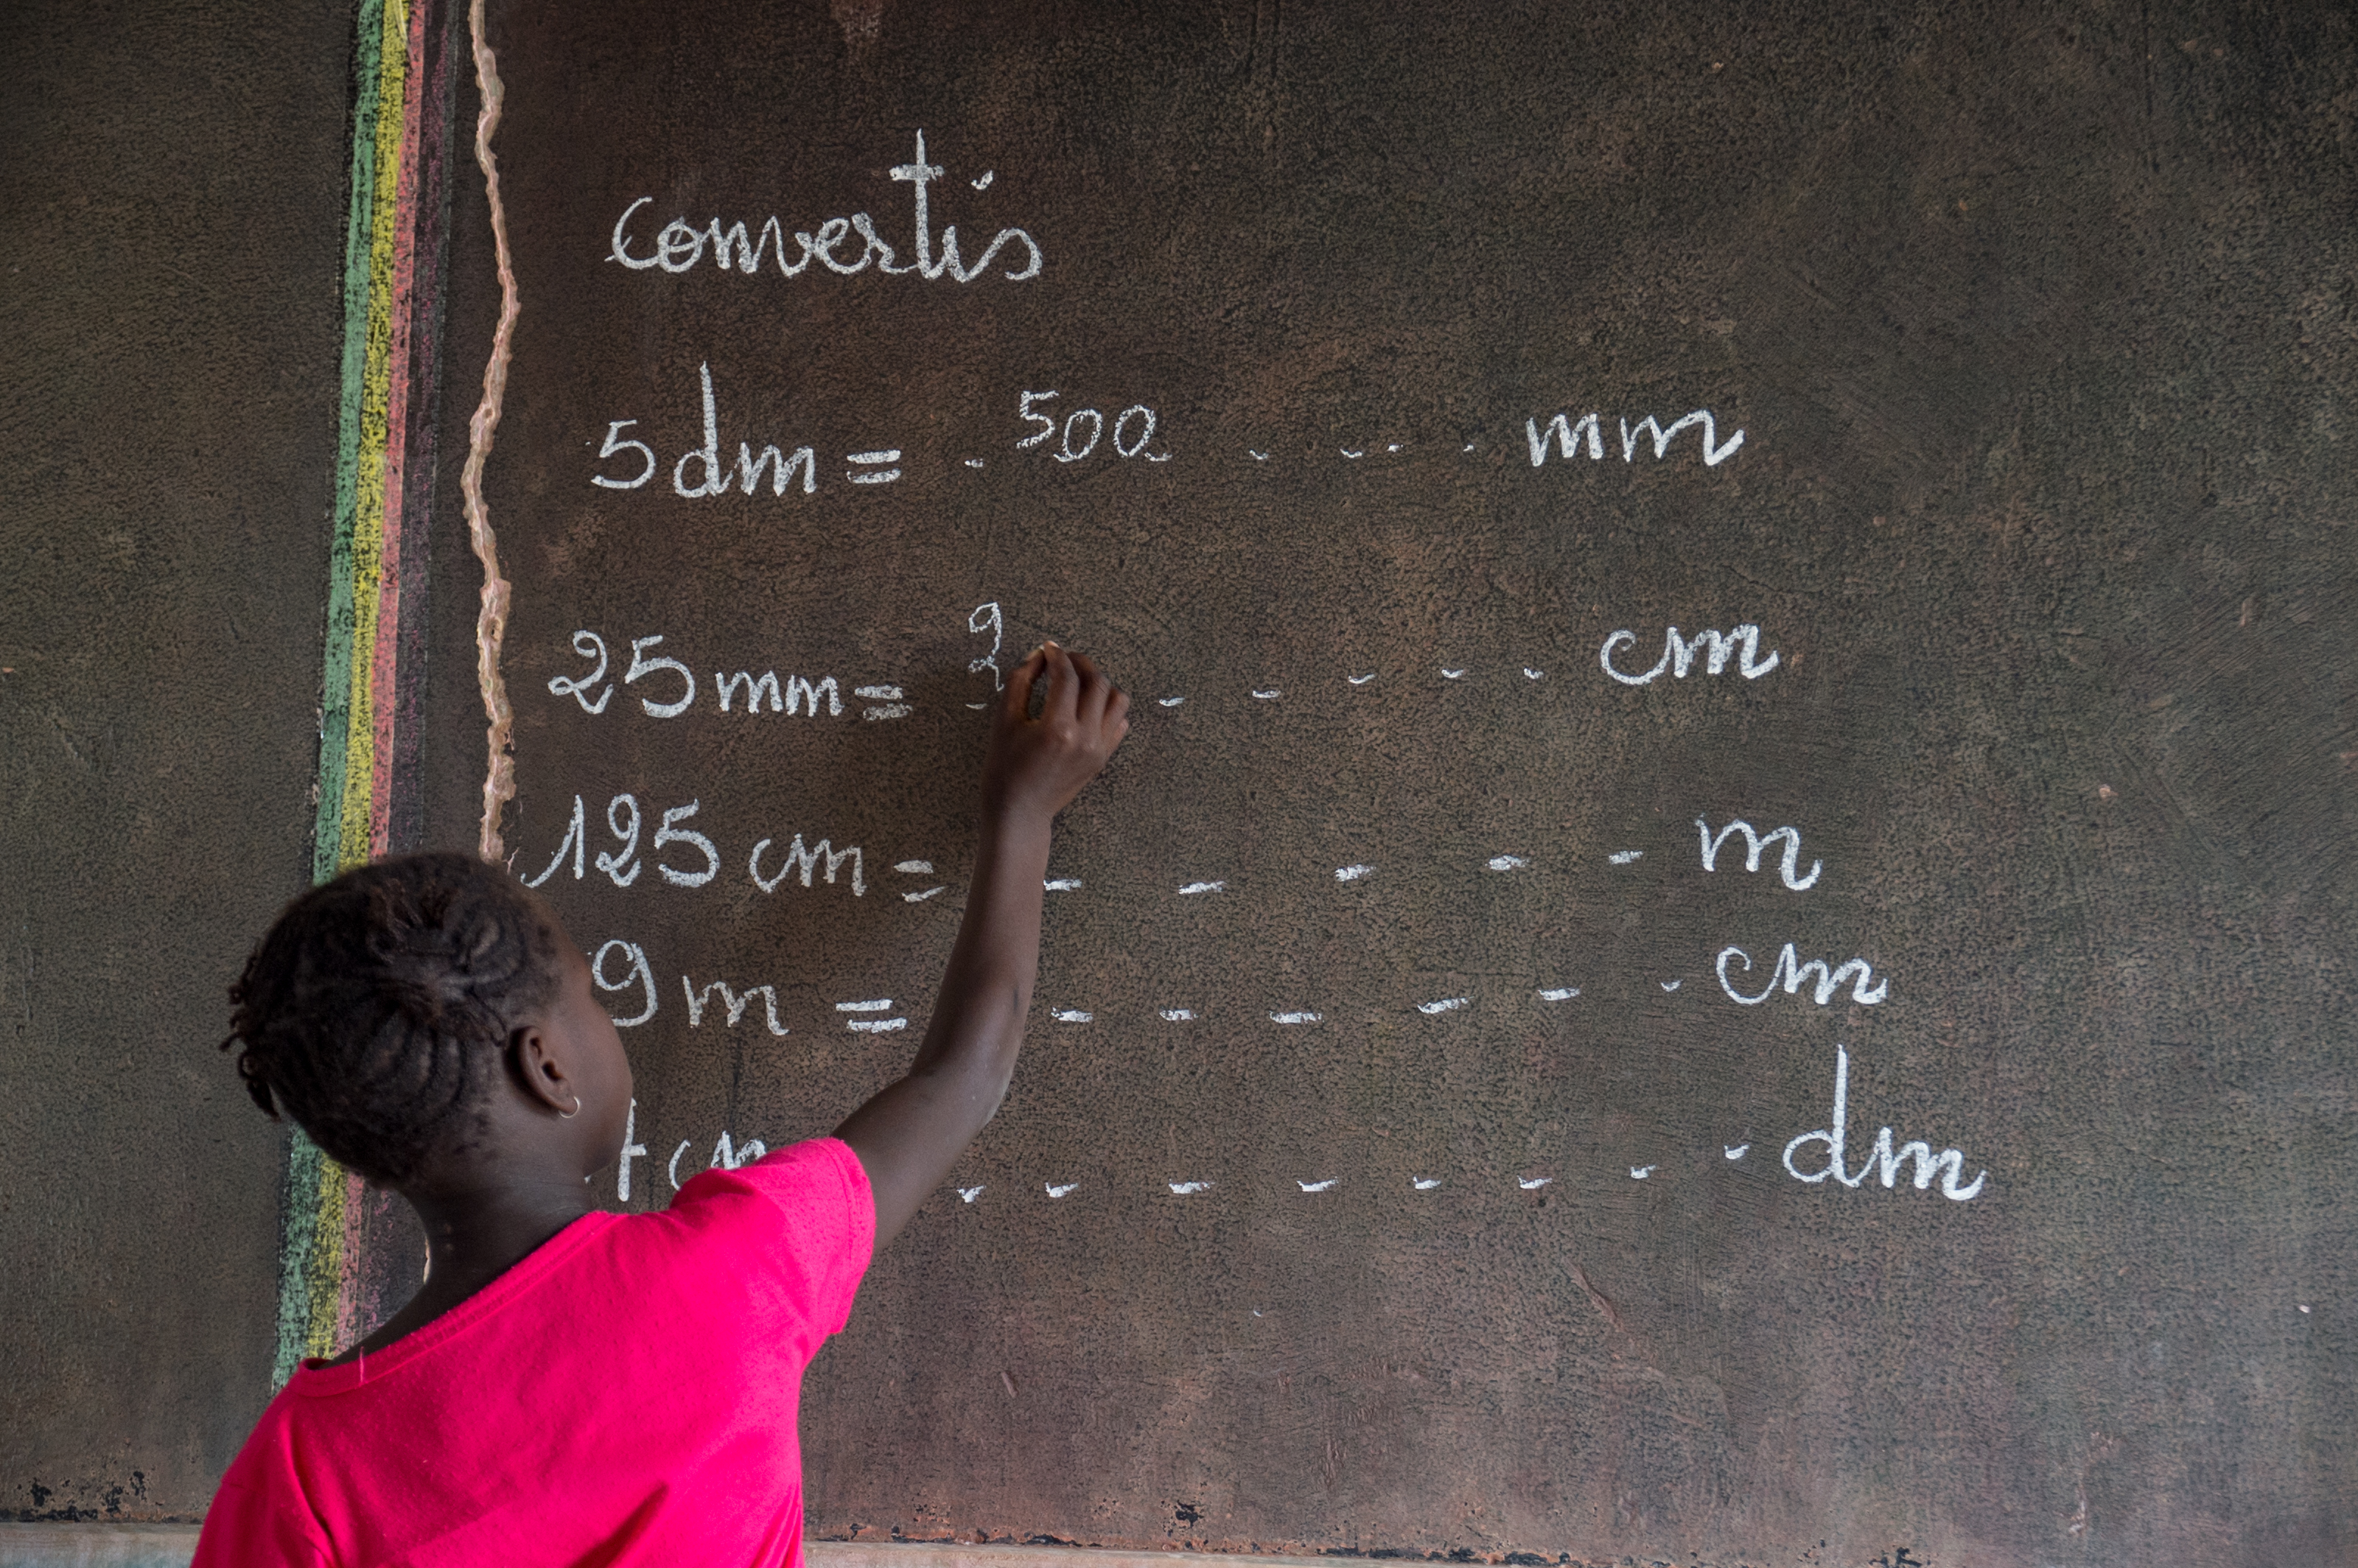 convertis
5dm = . 500 . . . . mm
25mm = - 2 - - - - - cm
125 cm = - - - - - m
9 m = - - - - - - cm
cm - - - - - - - - dm